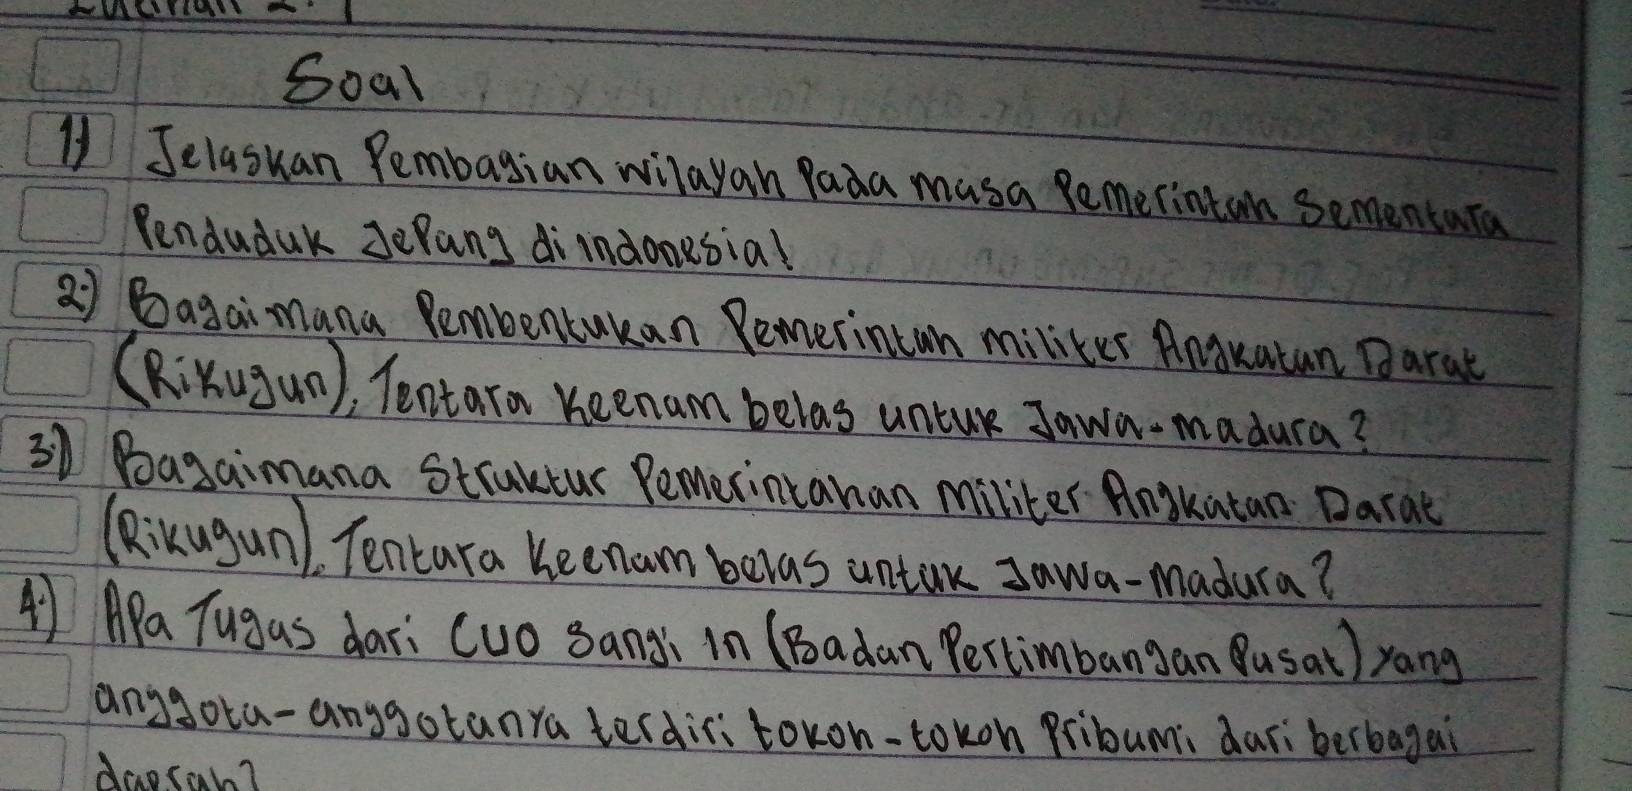 Latihan 2.1
Soal
1) Jelaskan Pembagian wilayah Pada masa Pemerintah Sementara
Penduduk Jepang di indonesia!
2.) Bagaimana Pembentukan Pemerintah militer Angkatan Darat
(Rikugun), Tentara Keenam belas untuk Jawa-madura?
3.) Bagaimana Struktur Pemerintahan Militer Angkatan Darat
(Rikugun), Tentara Keenam belas untuk Jawa-Madura?
4.) APa Tugas dari CUO Sangi in (Badan Pertimbangan Pusat) yang
anggota-anggotanya terdiri tokoh-tokoh Pribumi dari berbagai
daerah?